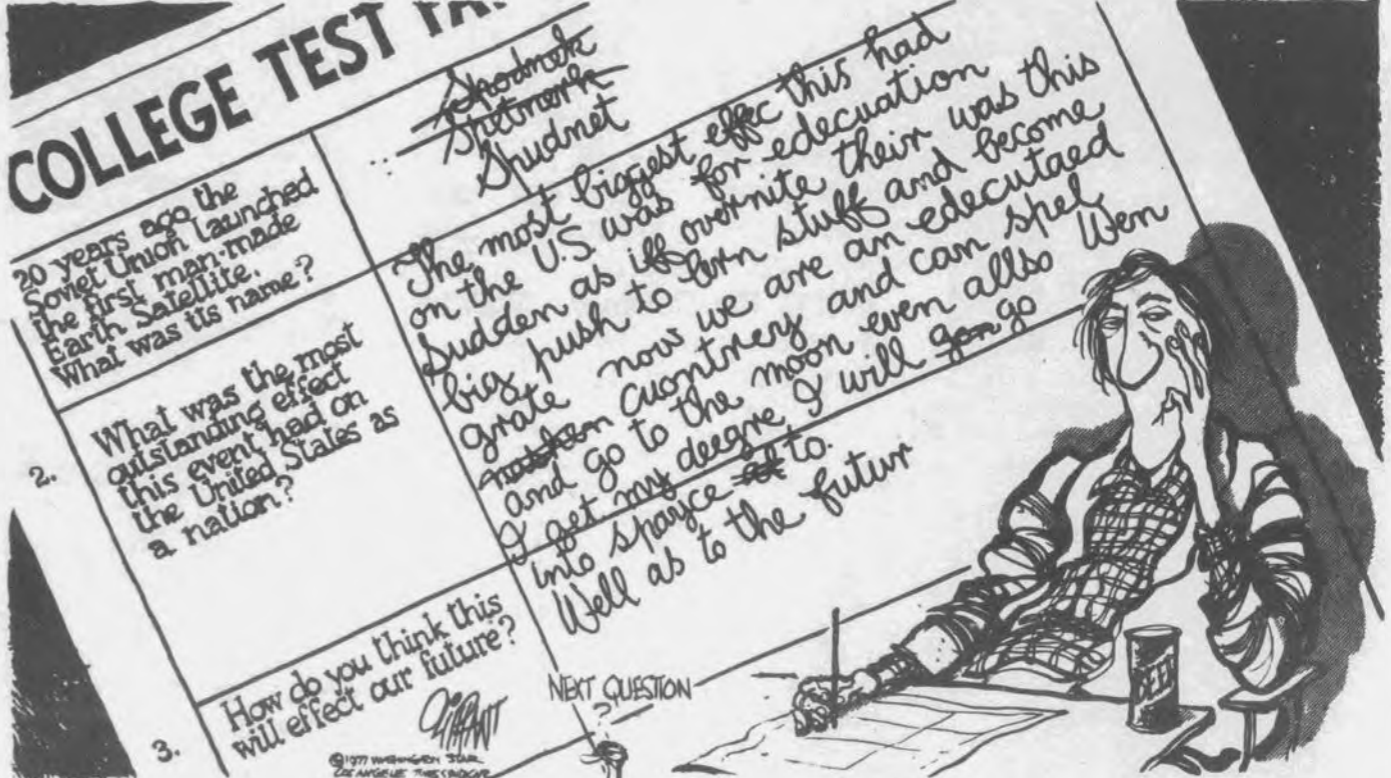 COLLEGE TEST PA
20 years ago the
Soviet Union launched
the first man-made
Earth Satellite.
What was its name?
Shodnek
Spetmork
Shudnet
2.
What was the most
outstanding effect
this event had on
the United States as
a nation?
The most biggest effec this had
on the U.S. was for edecuation
Sudden as iff overnite their was this
big push to lern stuff and become
grate now we are an edecutaed
cuontrery and can spel
and go to the moon even allso Wen
I get my deegre I will gon go
into spayce to.
3.
How do you think this
will effect our future?
Well as to the futur
OLIPHANT
©1977 WASHINGTON STAR
LOS ANGELES TIMES SYNDICATE
NEXT QUESTION
?
BEER